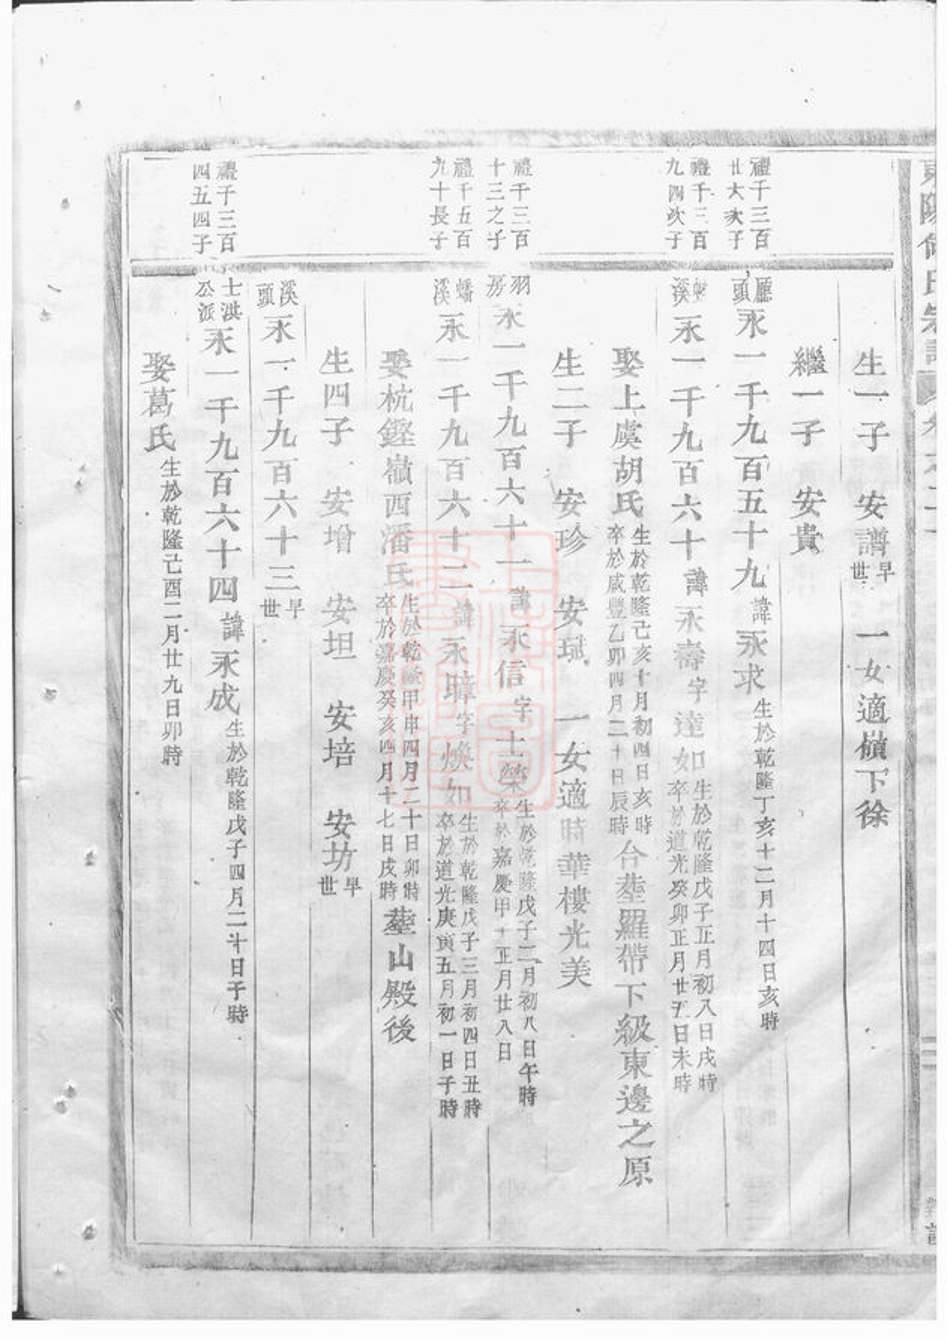 生一子 安譜早世 一女適嶺下徐
繼一子 安貴
禮千三百廿六次子
廳頭 永一千九百五十九 諱永求 生於乾隆丁亥十二月十四日亥時
禮千三百九四次子
溪 永一千九百六十 諱永壽 字達如 生於乾隆戊子正月初八日戌時 卒於道光癸卯正月廿五日未時
娶上虞胡氏 生於乾隆己亥十月初四日亥時 卒於咸豐乙卯四月二十日辰時 合塟羅帶下級東邊之原
生二子 安珍 安珷 一女適時華樓光美
禮千三百十三之子
羽房 永一千九百六十一 諱永信 字士榮 生於乾隆戊子二月初八日午時 卒於嘉慶甲子正月廿八日
禮千五百九十長子
蟠溪 永一千九百六十二 諱永暲 字煥如 生於乾隆戊子三月初四日丑時 卒於道光庚寅五月初一日子時
娶杭鏗嶽西潘氏 生於乾隆甲申四月二十日卯時 卒於嘉慶癸亥四月十七日戌時 塟山殿後
生四子 安增 安坦 安培 安坊早世
溪頭 永一千九百六十三 早世
禮千三百四五四子
士洪公派 永一千九百六十四 諱永成 生於乾隆戊子四月二十日子時
娶葛氏 生於乾隆己酉二月廿九日卯時